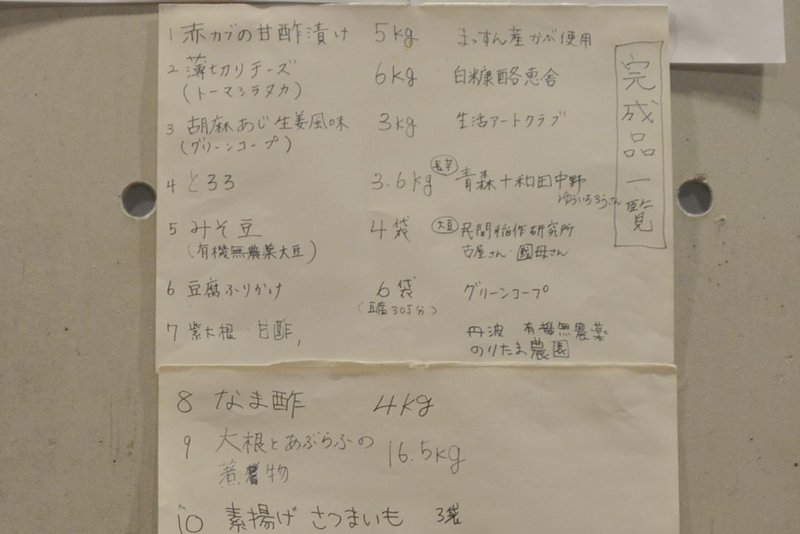 完成品一覧
1 赤カブの甘酢漬け 5kg まっすん産かぶ使用
2 薄切りチーズ 6kg 白糠酪恵舎
(トーマシラヌカ)
3 胡麻あじ生姜風味 3kg 生活アートクラブ
(グリーンコープ)
4 とろろ 3.6kg 長芋 青森十和田中野
ゆういちろうさん
5 みそ豆 4袋 大豆 民間稲作研究所
(有機無農薬大豆) 古屋さん・國母さん
6 豆腐ふりかけ 6袋 グリーンコープ
(豆腐305分)
7 紫大根 甘酢, 丹波 有機無農薬
のりたま農園
8 なま酢 4kg
9 大根とあぶらふの 16.5kg
煮物
10 素揚げ さつまいも 3袋